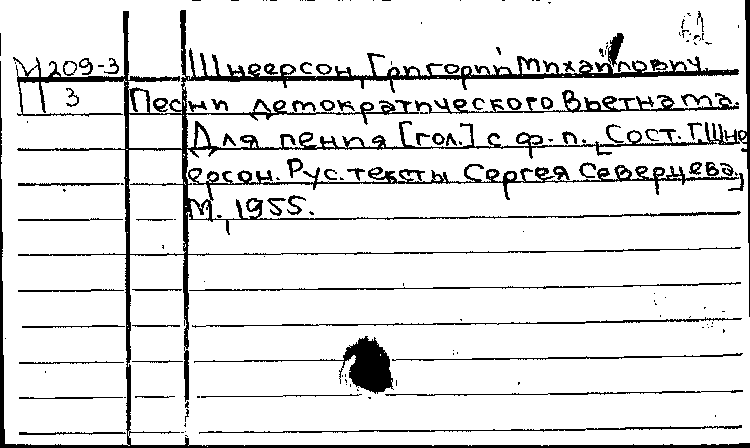 М 209-3 Шнеерсон, Григорий Михайлович.
П 3 Песни демократического Вьетнама.
Для пения [гол.] с ф-п. [Сост. Г. Шне
ерсон. Рус. тексты Сергея Северцева.]
М., 1955.